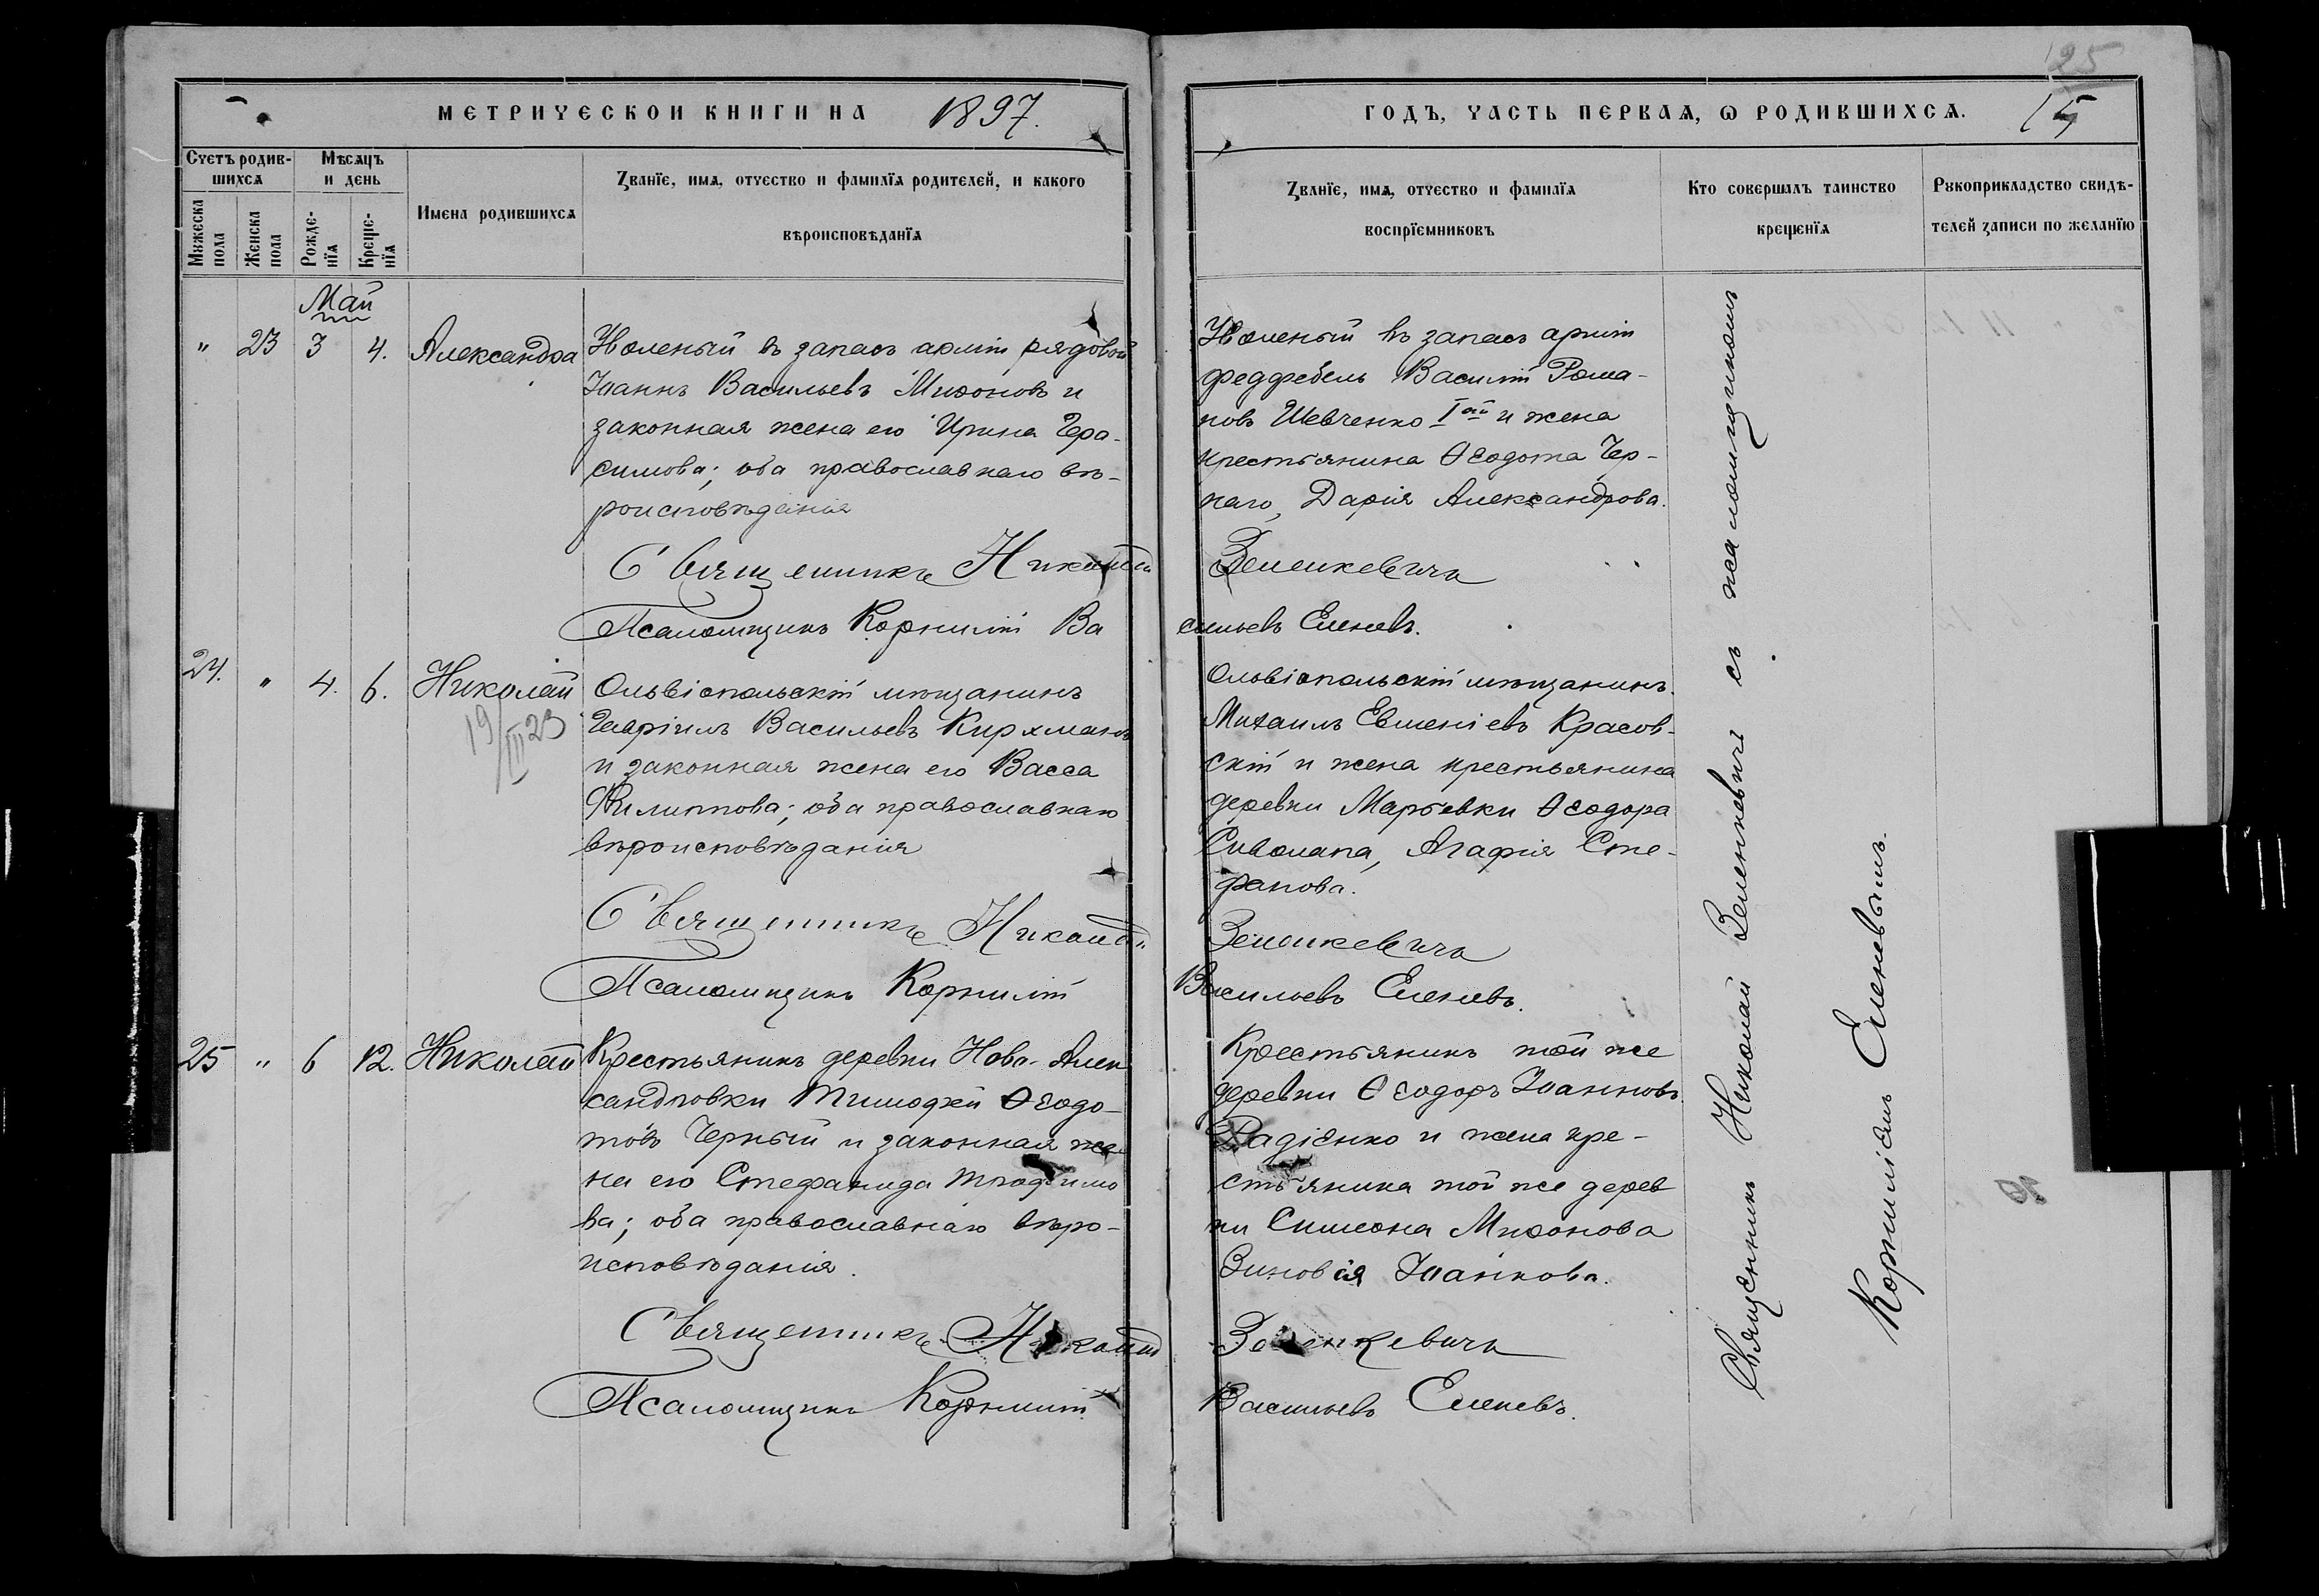 125
МЕТРИЧЕСКОИ КНИГИ НА 1897.
ГОДЪ, ЧАСТЬ ПЕРВАѦ, Ѡ РОДИВШИХСѦ. 15
Счетъ родив-
шихсѧ
Мѣсѧцъ
и день
Мꙋжеска
пола
Женска
пола
Рожде-
нїѧ
Креще-
нїѧ
Имена родившихсѧ
Званїе, имѧ, отчество и фамилїѧ родителей, и какого
вѣроисповѣданїѧ
Званїе, имѧ, отчество и фамилїѧ
воспрїемниковъ
Кто совершалъ таинство
крещенїѧ
Рꙋкоприкладство свидѣ-
телей записи по желанїю
Май
" 23 3 4. Александра
Уволеный въ запасъ арміи рядовой
Іоаннъ Васильевъ Миронов и
законная жена его Ирина Гера-
симова; оба православнаго вѣ-
роисповѣданія
Уволеный въ запасъ арміи
федфебель Василій Рома-
новъ Шевченко Iый и жена
крестьянина Ѳеодота Чер-
наго, Дарія Александрова.
Священникъ Зеленкевичъ
Псаломщикъ Корнилій Васильевъ Еленевъ.
24. " 4. 6. Николай
19/III 23
Ольвіопольскій мѣщанинъ
Гавріилъ Васильевъ Кирхманъ
и законная жена его Васса
Филиппова; оба православнаго
вѣроисповѣданія
Ольвіопольскій мѣщанинъ
Михаилъ Евгеніевъ Красов-
скій и жена крестьянина
деревни Марьевки Ѳеодора
Сиволапа, Агафія Сте-
фанова.
Священникъ Зеленкевичъ
Псаломщикъ Корнилій Васильевъ Еленевъ.
25 " 6 12. Николай
Крестьянинъ деревни Ново-Алек
сандровки Тимофей Ѳеодо-
товъ Черный и законная же-
на его Стефанида Трофимо
ва; оба православнаго вѣро-
исповѣданія.
Крестьянинъ той же
деревни Ѳеодоръ Іоанновъ
Радіенко и жена кре-
стьянина той же дерев
ни Симеона Миронова
Зиновія Іоаннова.
Священникъ Зеленкевичъ
Псаломщикъ Корнилій Васильевъ Еленевъ.
Священникъ Николай Зеленкевичъ съ псаломщикомъ
Корниліемъ Еленевымъ.